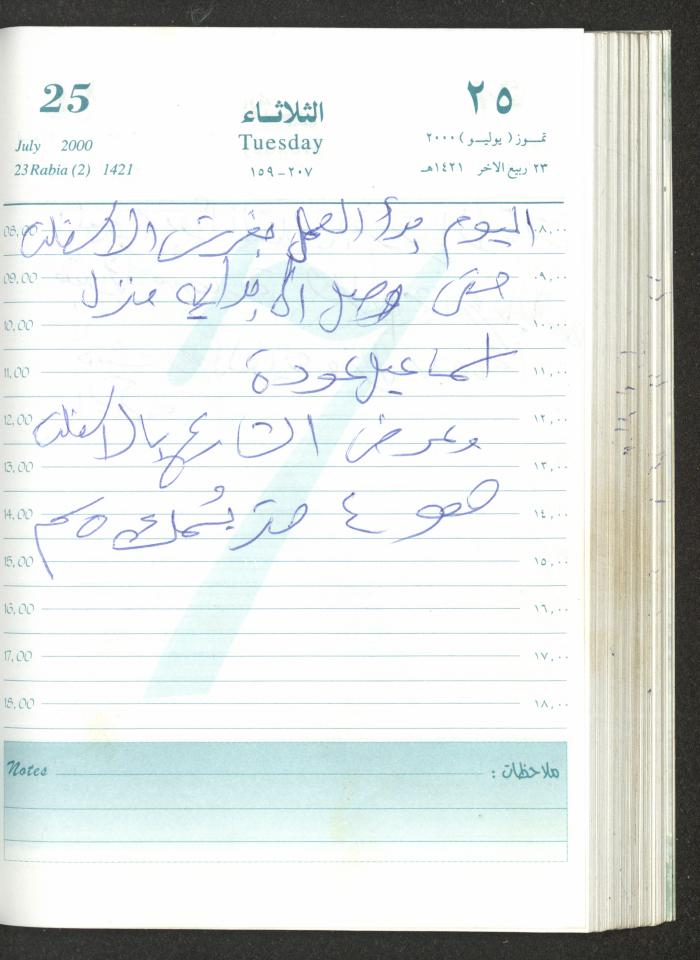 25
الثلاثاء
٢٥
July 2000
Tuesday
تمـوز (يوليـو) ٢٠٠٠
23 Rabia (2) 1421
١٥٩-٢٠٧
٢٣ ربيع الآخر ١٤٢١هـ
08,00 اليوم بدأ العمل بفرش الاسفلت ٠٨,٠٠
09,00 حتى وصل الى بداية منزل ٠٩,٠٠
10,00 ١٠,٠٠
11,00 اسماعيل عودة ١١,٠٠
12,00 وعرض الشارع بالاسفلت ١٢,٠٠
13,00 ١٣,٠٠
14,00 هو ٤ متر بسُمك ٥ سم ١٤,٠٠
15,00 ١٥,٠٠
16,00 ١٦,٠٠
17,00 ١٧,٠٠
18,00 ١٨,٠٠
Notes ملاحظات :